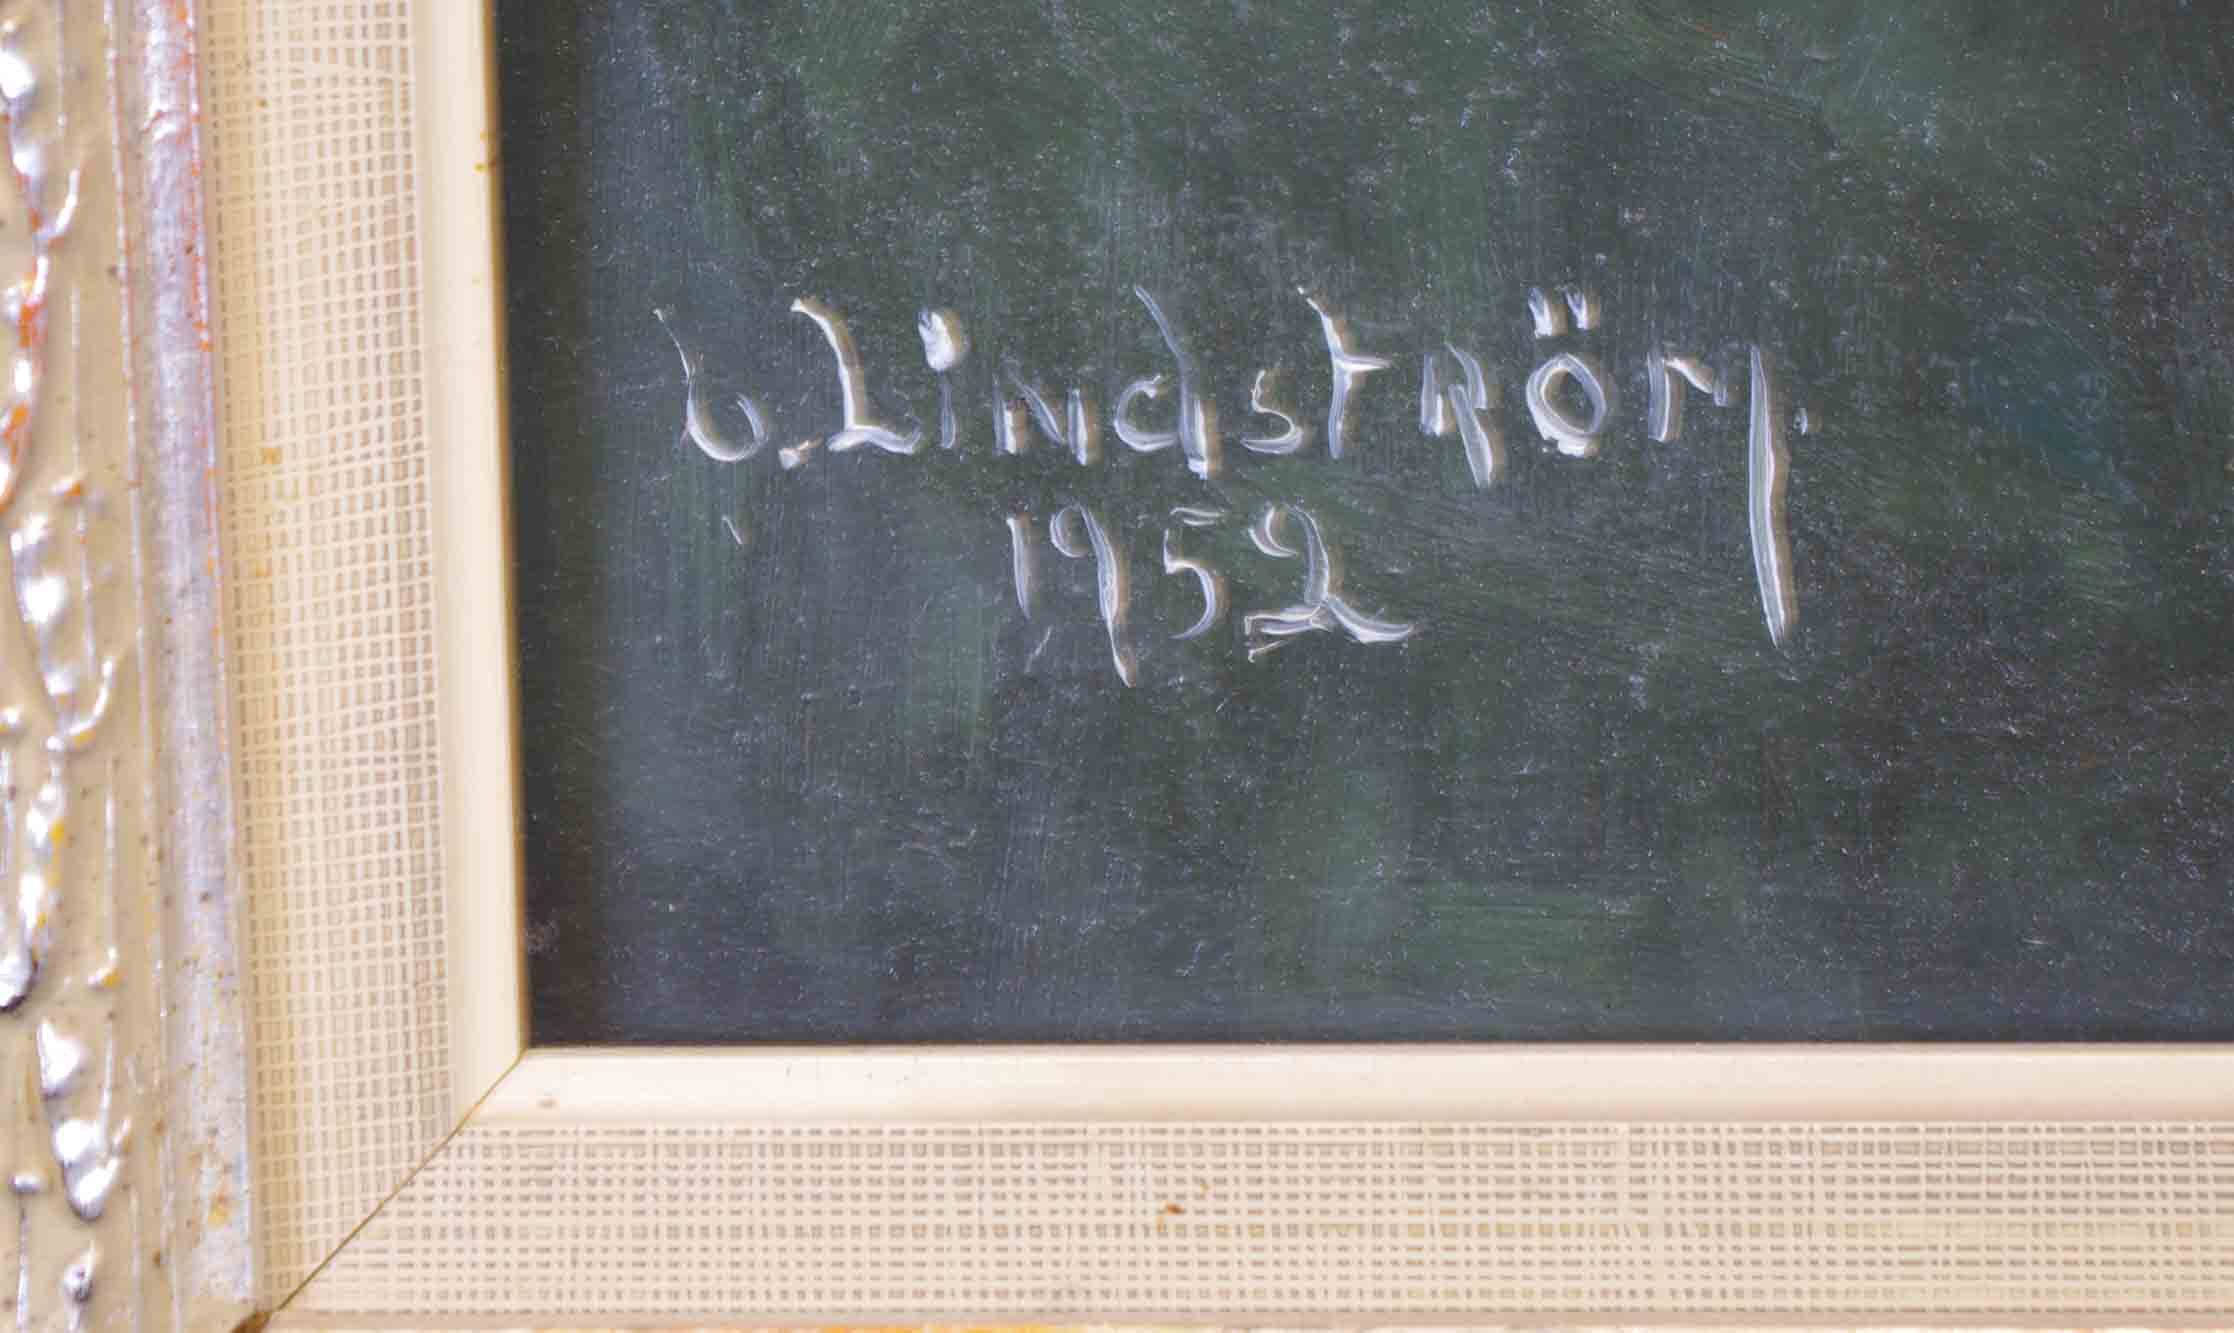 b. LindstRöm.
1952